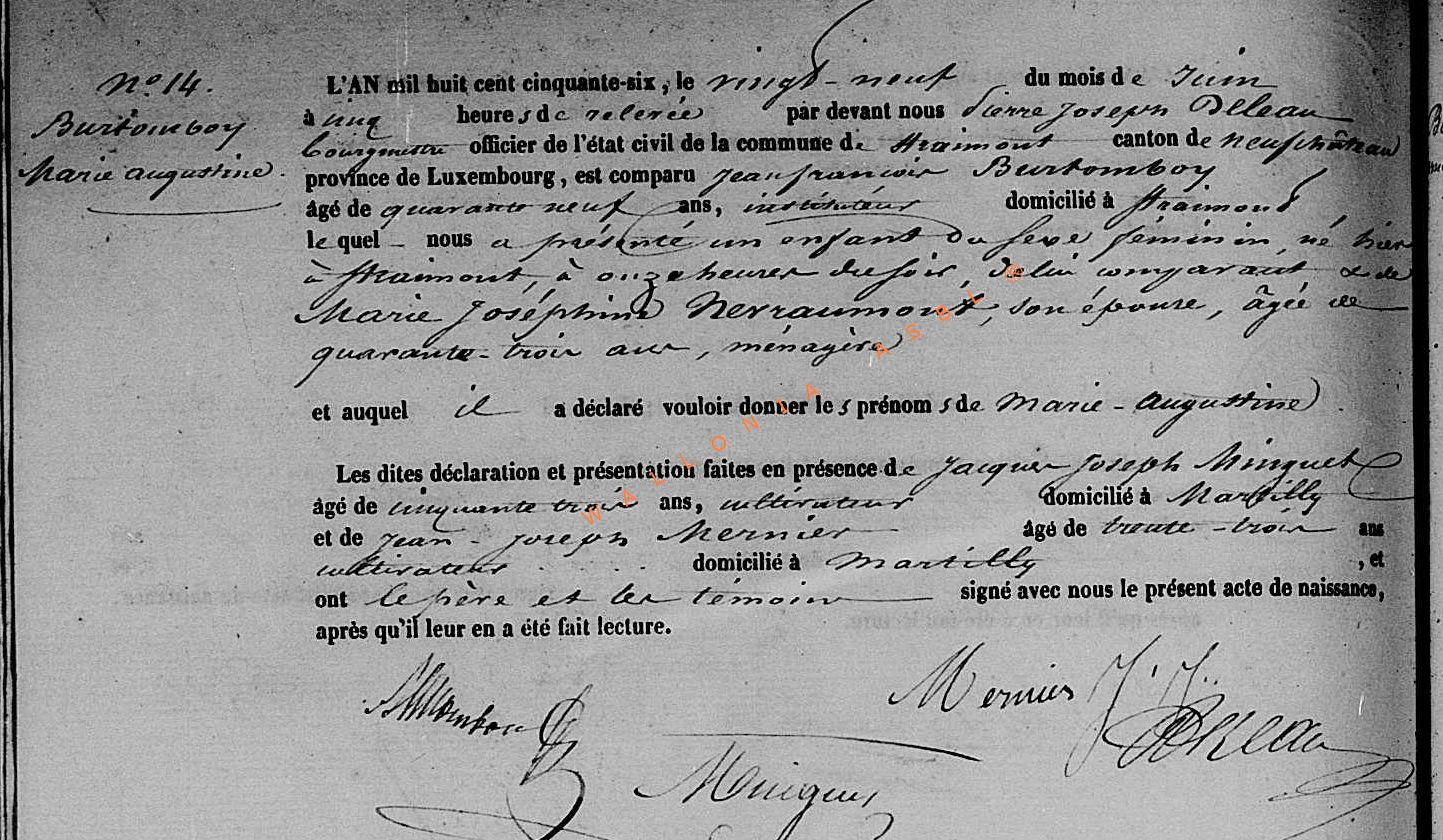 No. 14.
Burtomboy
Marie Augustine.
L'AN mil huit cent cinquante-six, le vingt-neuf du mois de Juin
à cinq heures de relevée par devant nous Pierre Joseph Deleau
Bourgmestre officier de l'état civil de la commune de Straimont canton de Neufchâteau
province de Luxembourg, est comparu Jean françois Burtomboy
âgé de quarante neuf ans, instituteur domicilié à Straimont
le quel nous a présenté un enfant du sexe féminin, né hier
à Straimont, à onze heures du soir, de lui comparant & de
Marie Joséphine Nerraumont, son épouse, âgée de
quarante-trois ans, ménagère
et auquel il a déclaré vouloir donner les prénoms de Marie-Augustine.
Les dites déclaration et présentation faites en présence de Jacques Joseph Minguet
âgé de cinquante trois ans, cultivateur domicilié à Martilly
et de Jean-Joseph Mernier âgé de trente-trois ans
cultivateur domicilié à Martilly, et
ont le père et les témoins signé avec nous le présent acte de naissance,
après qu'il leur en a été fait lecture.
Mernier J. J.
Deleau
Minguet
WALLONIA ASBL ©